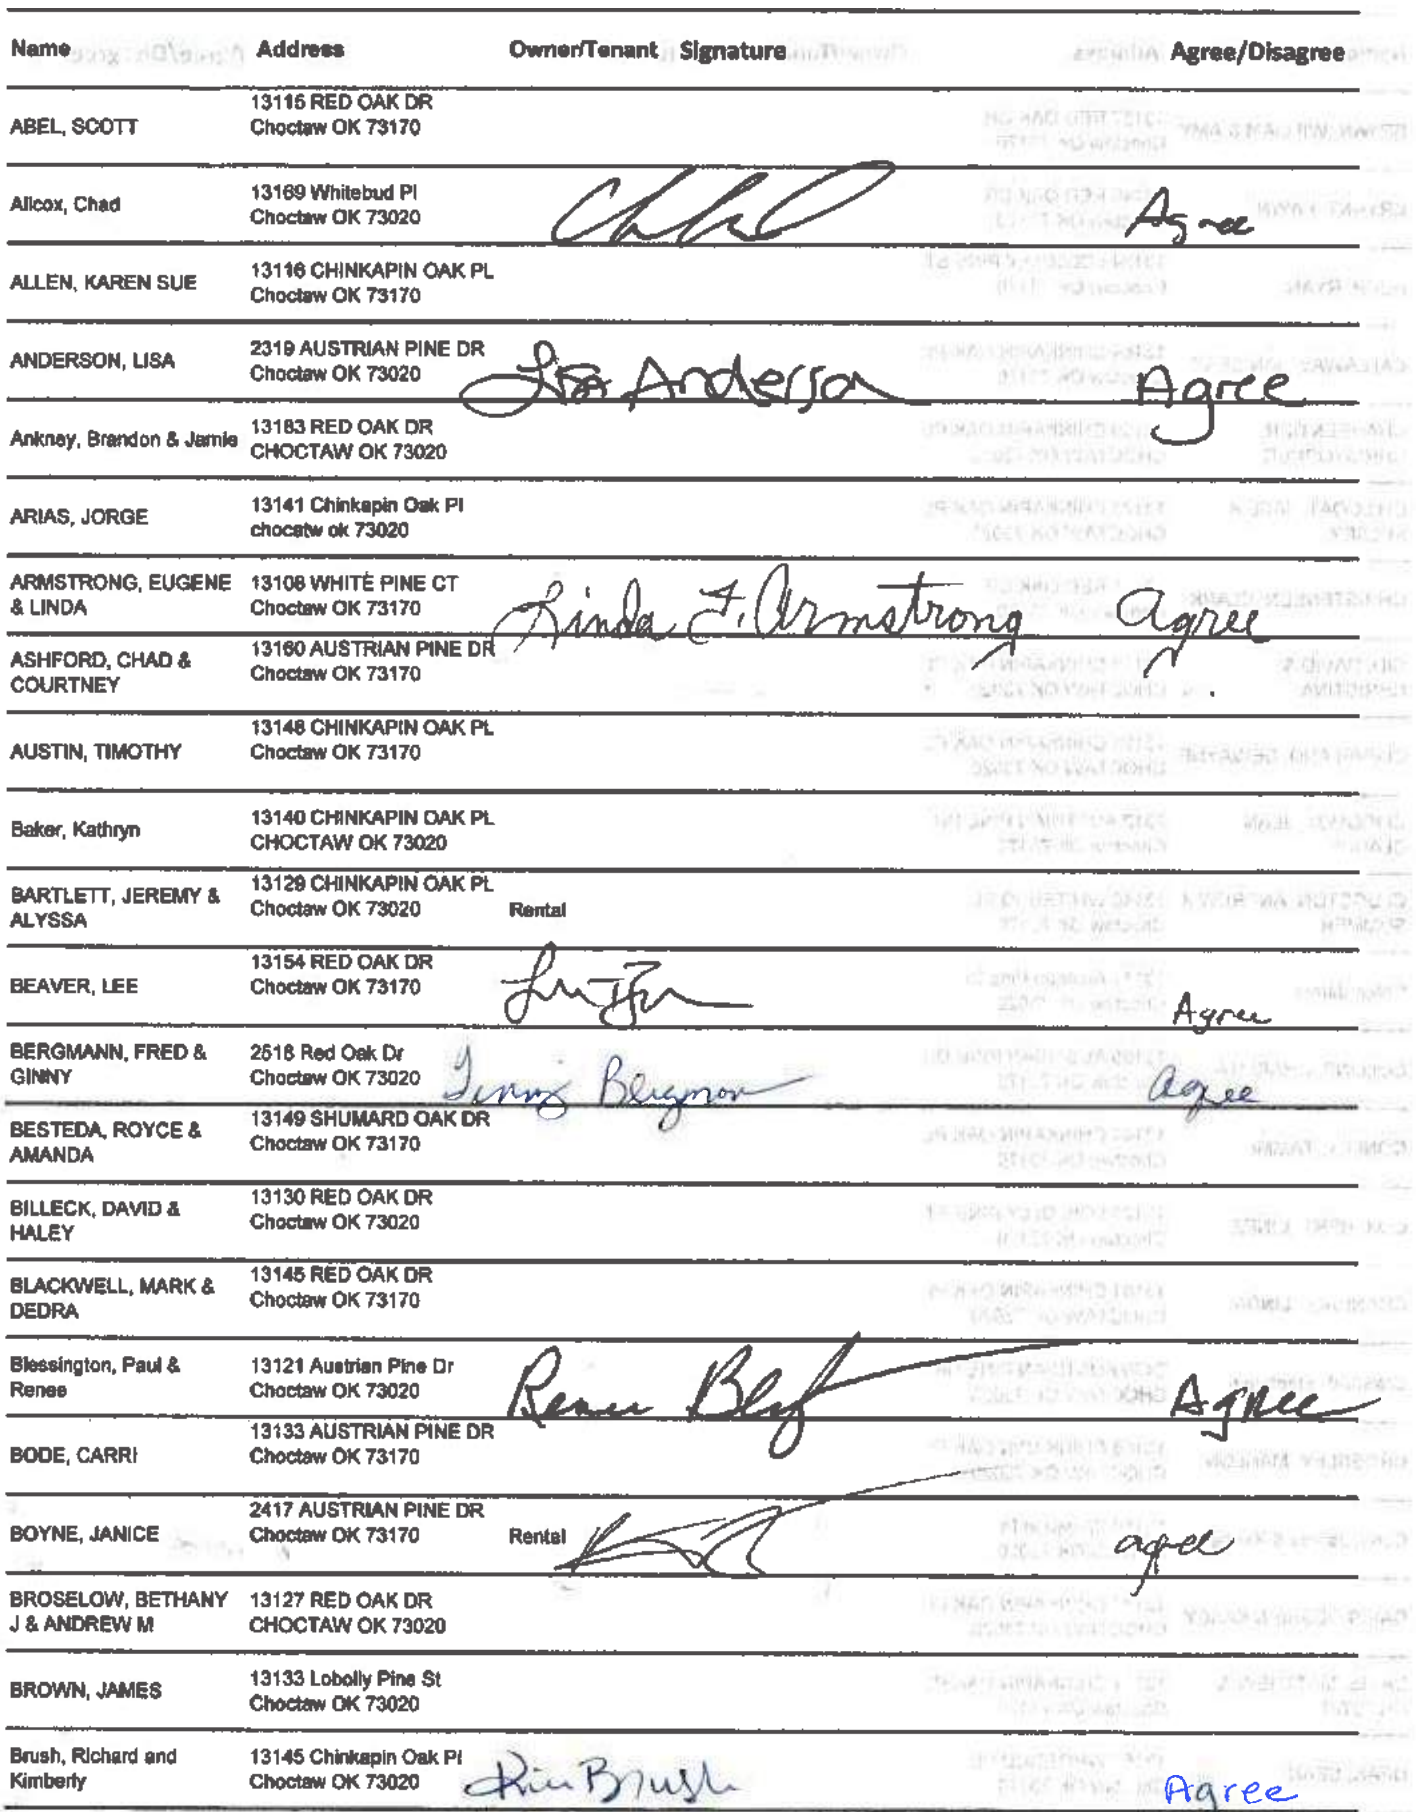 Name Address Owner/Tenant Signature Agree/Disagree
ABEL, SCOTT 13115 RED OAK DR
Choctaw OK 73170
Allcox, Chad 13169 Whitebud Pl
Choctaw OK 73020 Agree
ALLEN, KAREN SUE 13116 CHINKAPIN OAK PL
Choctaw OK 73170
ANDERSON, LISA 2319 AUSTRIAN PINE DR
Choctaw OK 73020 Lisa Anderson Agree
Anknay, Brandon & Jamie 13183 RED OAK DR
CHOCTAW OK 73020
ARIAS, JORGE 13141 Chinkapin Oak Pl
chocatw ok 73020
ARMSTRONG, EUGENE 13108 WHITE PINE CT
& LINDA Choctaw OK 73170 Linda F. Armstrong Agree
ASHFORD, CHAD & 13160 AUSTRIAN PINE DR
COURTNEY Choctaw OK 73170
AUSTIN, TIMOTHY 13148 CHINKAPIN OAK PL
Choctaw OK 73170
Baker, Kathryn 13140 CHINKAPIN OAK PL
CHOCTAW OK 73020
BARTLETT, JEREMY & 13129 CHINKAPIN OAK PL
ALYSSA Choctaw OK 73020 Rental
BEAVER, LEE 13154 RED OAK DR
Choctaw OK 73170 Agree
BERGMANN, FRED & 2518 Red Oak Dr
GINNY Choctaw OK 73020 Agree
BESTEDA, ROYCE & 13149 SHUMARD OAK DR
AMANDA Choctaw OK 73170
BILLECK, DAVID & 13130 RED OAK DR
HALEY Choctaw OK 73020
BLACKWELL, MARK & 13145 RED OAK DR
DEDRA Choctaw OK 73170
Blessington, Paul & 13121 Austrian Pine Dr
Renee Choctaw OK 73020 Renee Agree
BODE, CARRI 13133 AUSTRIAN PINE DR
Choctaw OK 73170
BOYNE, JANICE 2417 AUSTRIAN PINE DR
Choctaw OK 73170 Rental agree
BROSELOW, BETHANY 13127 RED OAK DR
J & ANDREW M CHOCTAW OK 73020
BROWN, JAMES 13133 Lobolly Pine St
Choctaw OK 73020
Brush, Richard and 13145 Chinkapin Oak Pl
Kimberly Choctaw OK 73020 Kim Brush Agree